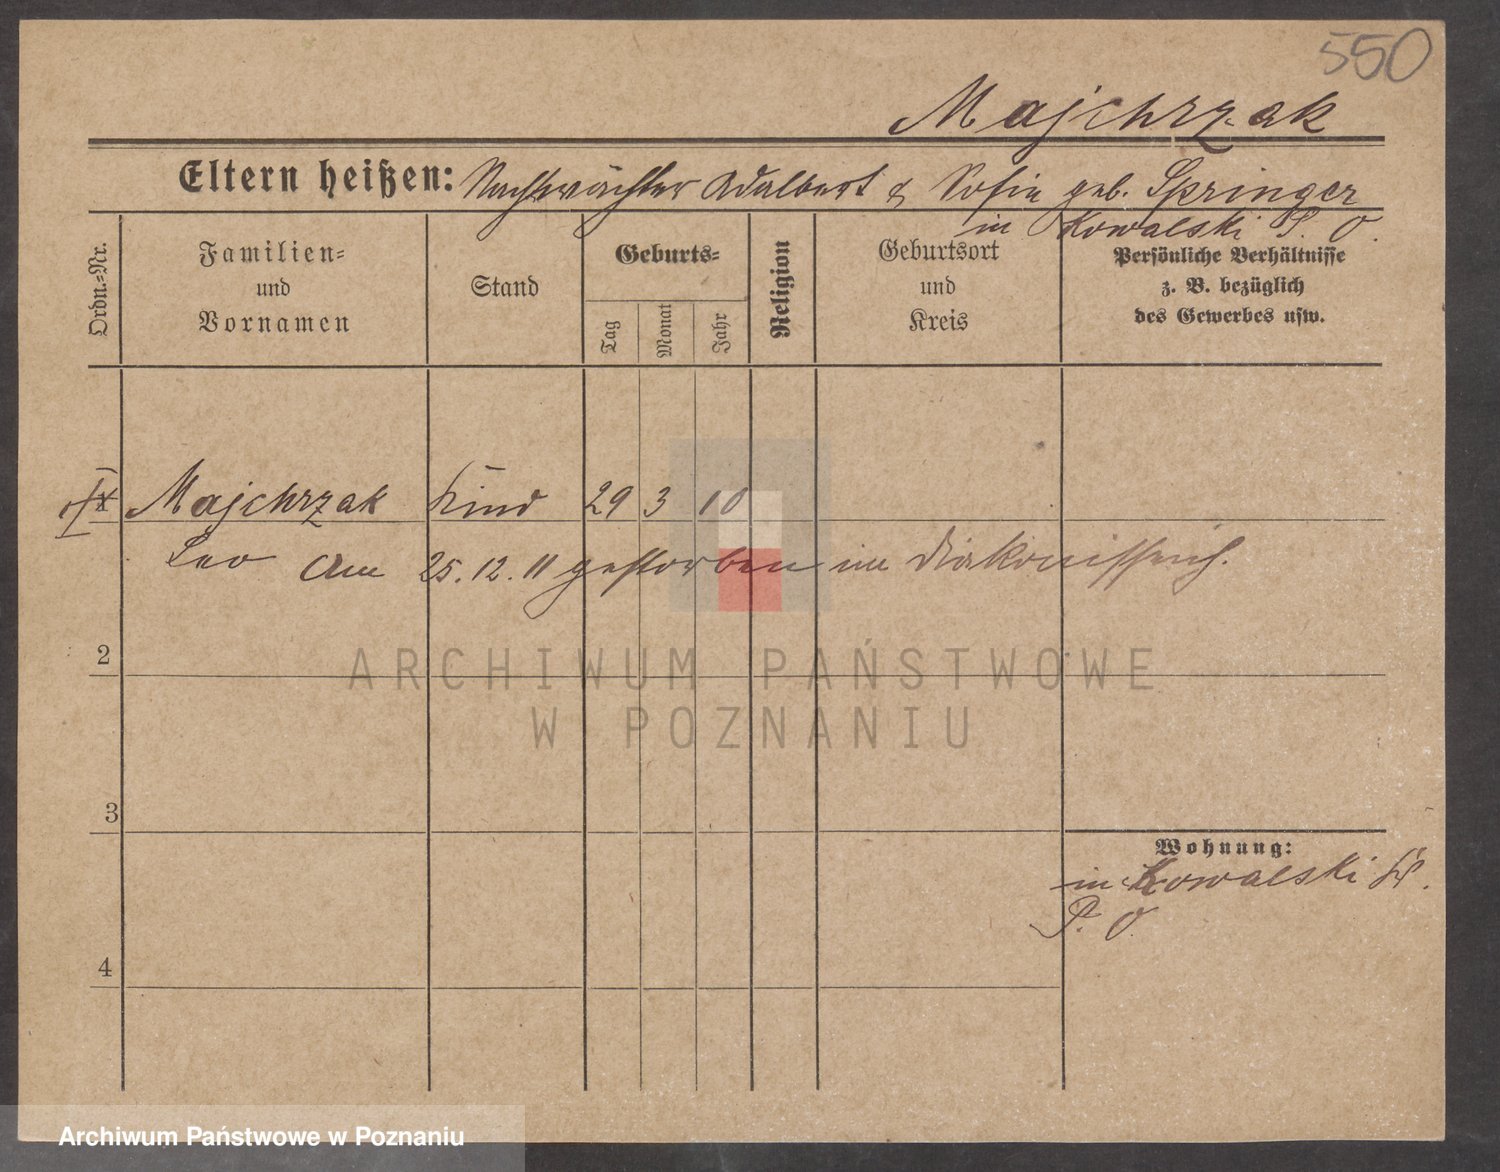 550
Majchrzak
Eltern heißen: Nachtwächter Adalbert & Sofie geb. Springer
in Kowalski P. O.
Ordn.-Nr.
Familien-
und
Vornamen
Stand
Geburts-
Tag
Monat
Jahr
Religion
Geburtsort
und
Kreis
Persönliche Verhältnisse
z. B. bezüglich
des Gewerbes usw.
1 Majchrzak Kind 29 3 10
Leo am 25.12.11 gestorben im
2
3
4
Wohnung:
in Kowalski
P. O.
ARCHIWUM PAŃSTWOWE
W POZNANIU
Archiwum Państwowe w Poznaniu